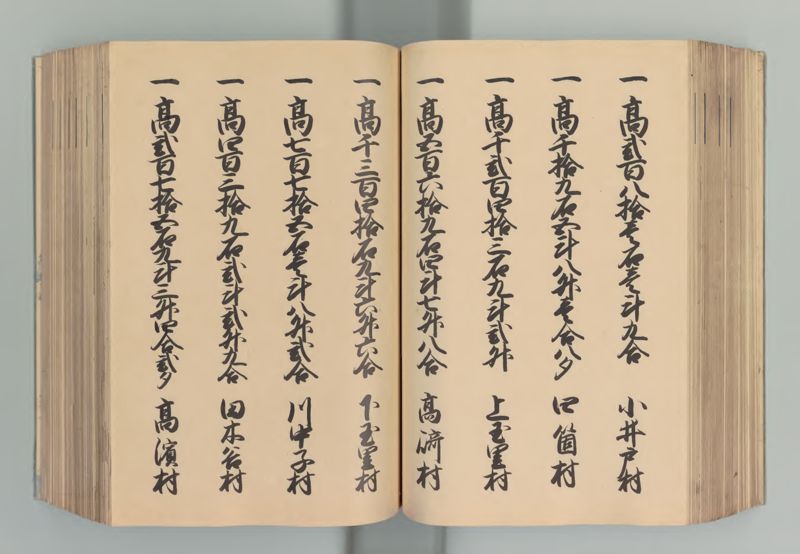 一高弐百八拾壱石壱斗九合 小井戸村
一高千拾九石五斗八升壱合八夕 四箇村
一高千弐百四拾三石九斗弐升 上玉里村
一高五百六拾九石四斗七升八合 高崎村
一高千三百四拾石九斗六升六合 下玉里村
一高七百七拾五石壱斗八升弐合 川中子村
一高四百三拾九石弐斗弐升九合 田木谷村
一高弐百七拾五石九斗三升四合弐夕 高濱村